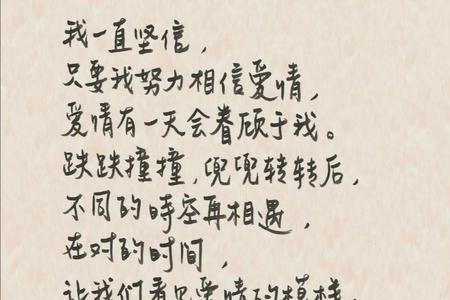 我一直坚信，
只要我努力相信爱情，
爱情有一天会眷顾于我。
跌跌撞撞，兜兜转转后，
不同的時空再相遇，
在对的时间，
让我们看见爱情的模样，